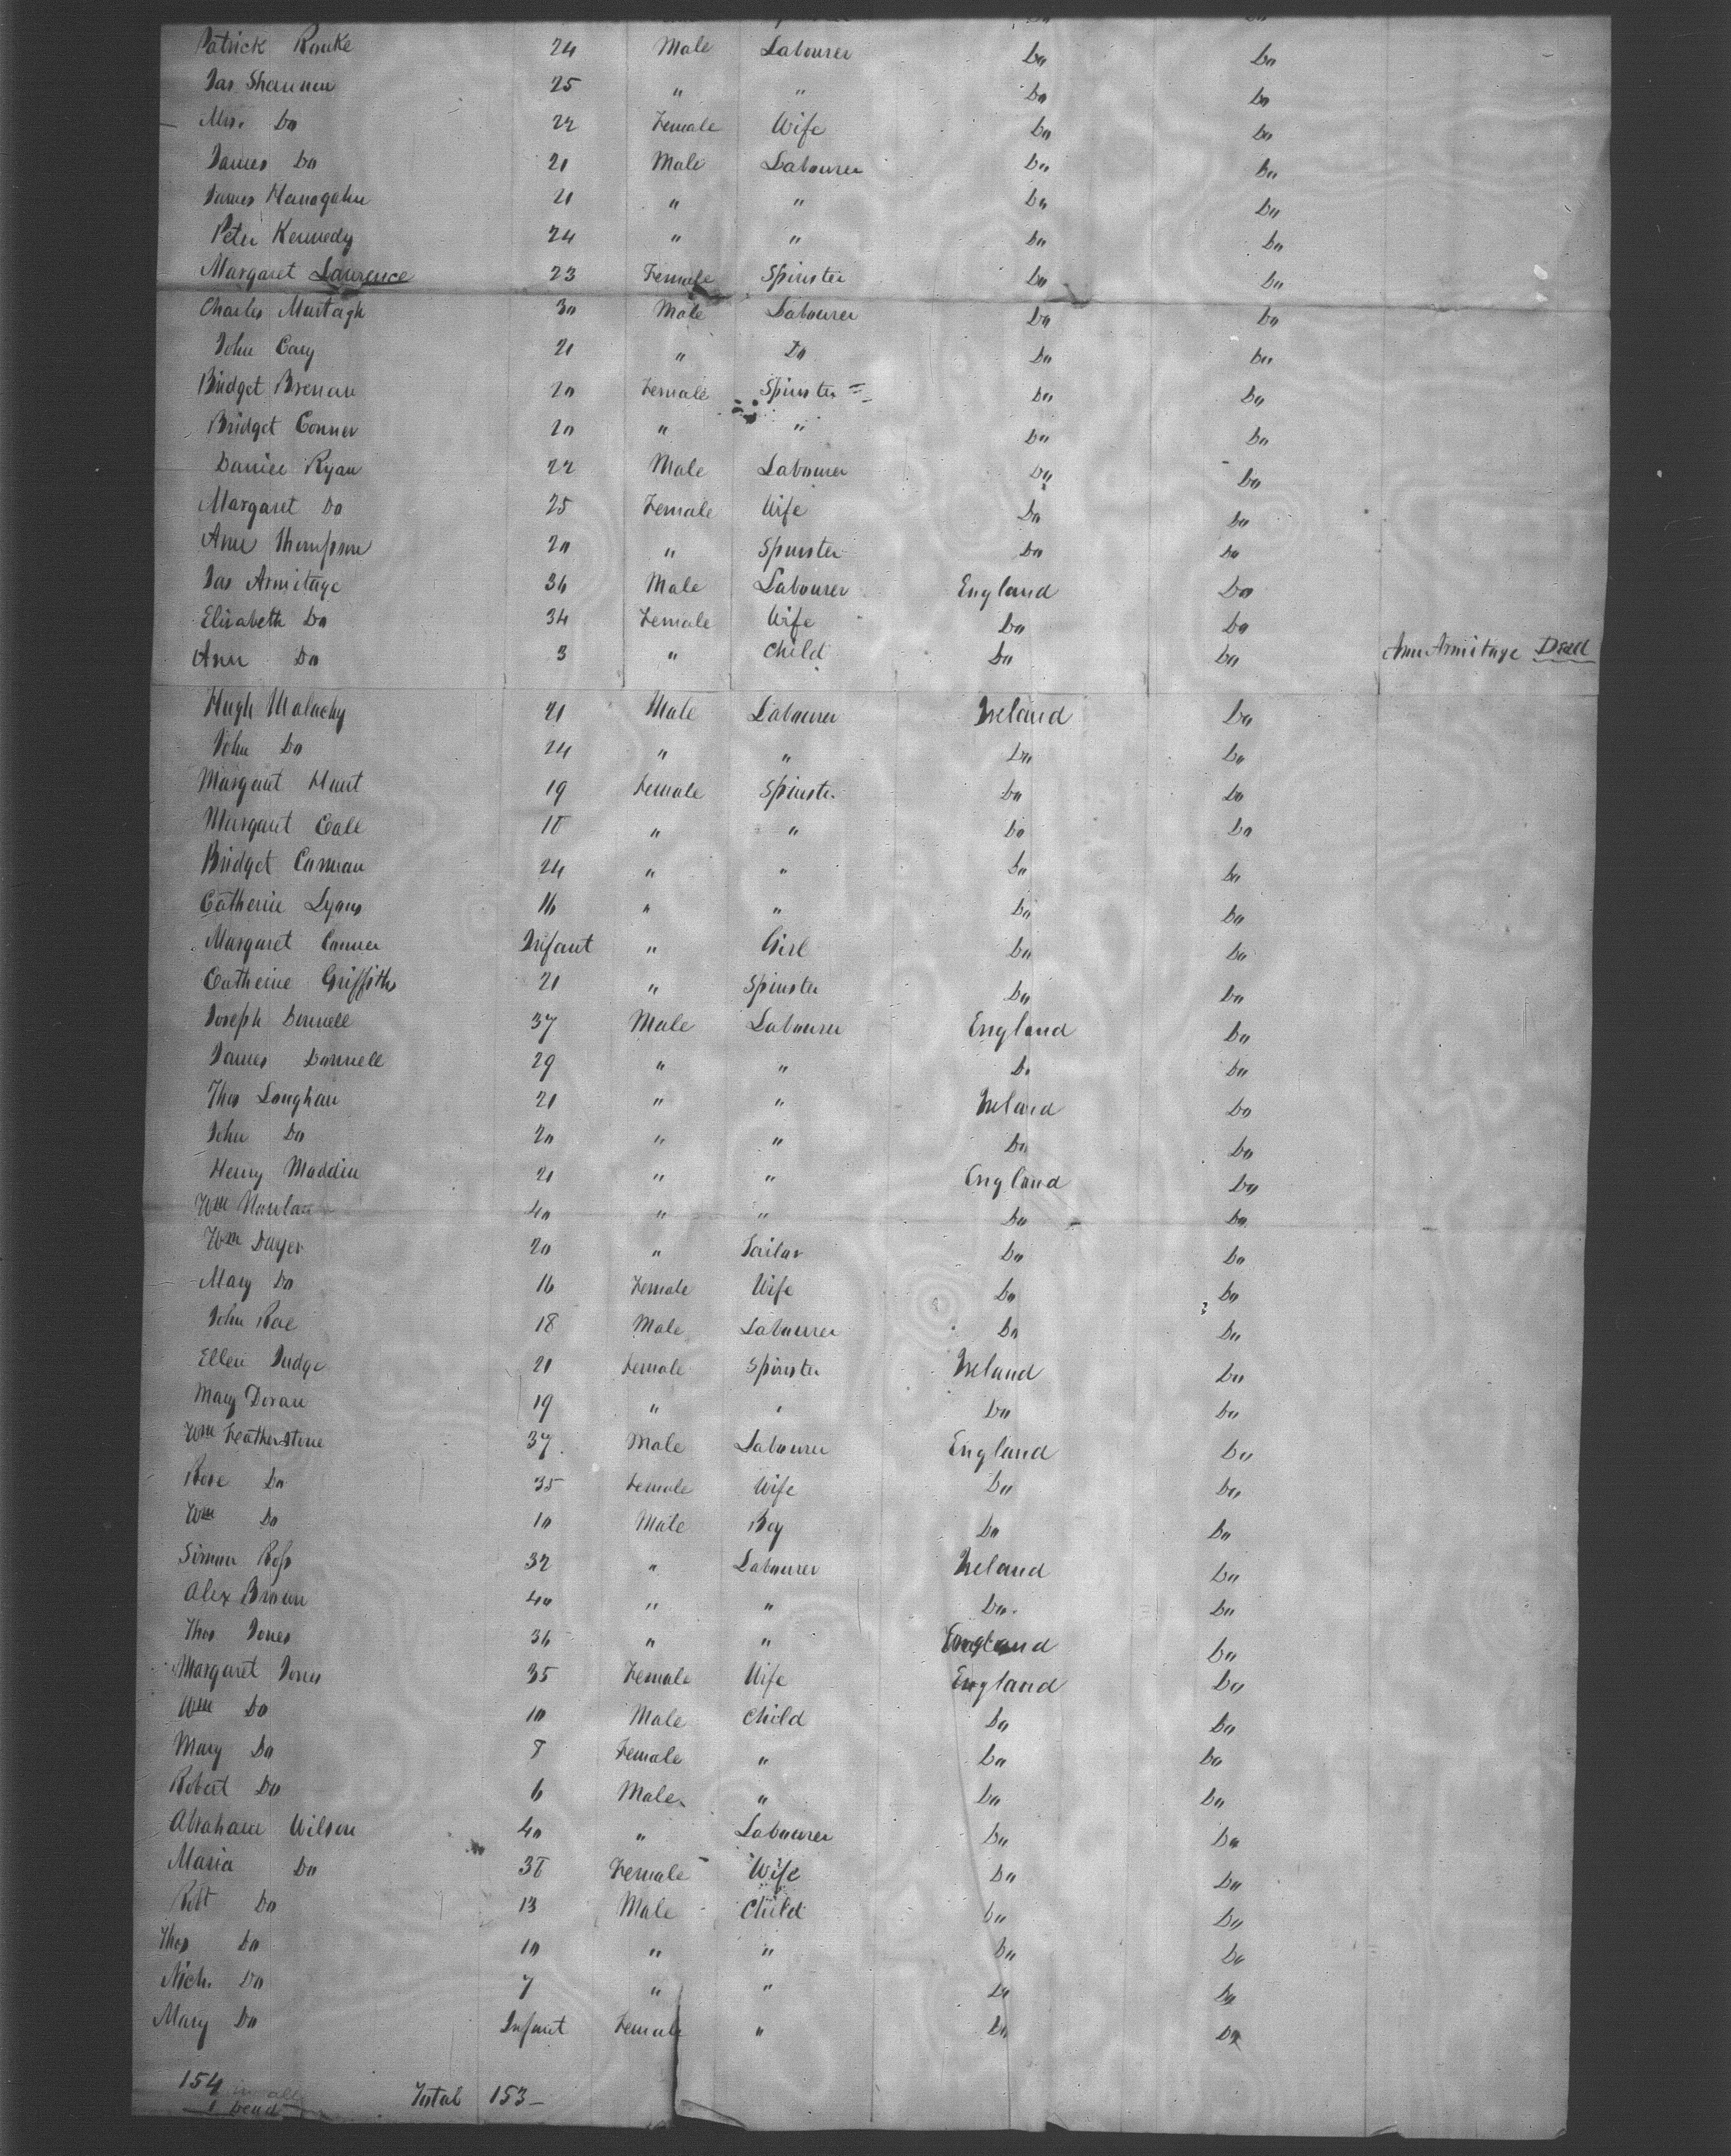 Patrick Rouke 24 Male Labourer Do Do
Jas Shannon 25 " " Do Do
Mrs. Do 22 Female Wife Do Do
James Do 21 Male Labourer Do Do
James Hanogahn 21 " " Do Do
Peter Kennedy 24 " " Do Do
Margaret Laurence 23 Female Spinster Do Do
Charles Murtagh 30 Male Labourer Do Do
John Cary 21 " Do Do Do
Bridget Brenan 20 Female Spinster Do Do
Bridget Conner 20 " " Do Do
Daniel Ryan 22 Male Labourer Do Do
Margaret Do 25 Female Wife Do Do
Ann Thompson 20 " Spinster Do Do
Jas Armitage 36 Male Labourer England Do
Elisabeth Do 34 Female Wife Do Do
Ann Do 3 " Child Do Do Ann Armitage Dead
Hugh Malachy 21 Male Labourer Ireland Do
John Do 24 " " Do Do
Margaret Hunt 19 Female Spinster Do Do
Margaret Call 18 " " Do Do
Bridget Cannan 24 " " Do Do
Catherine Lyons 16 " " Do Do
Margaret Conner Infant " Girl Do Do
Catherine Griffiths 21 " Spinster Do Do
Joseph Donnell 37 Male Labourer England Do
James Donnell 29 " " Do Do
Thos Loughan 21 " " Ireland Do
John Do 20 " " Do Do
Henry Maddin 21 " " England Do
Wm Nowlan 40 " " Do Do
Wm Dwyer 20 " Tailor Do Do
Mary Do 16 Female Wife Do Do
John Rae 18 Male Labourer Do Do
Ellen Judge 21 Female Spinster Ireland Do
Mary Doran 19 " " Do Do
Wm Featherstone 37 Male Labourer England Do
Rose Do 35 Female Wife Do Do
Wm Do 10 Male Boy Do Do
Simon Ross 32 " Labourer Ireland Do
Alex Brown 40 " " Do. Do
Thos Jones 36 " " England Do
Margaret Jones 35 Female Wife England Do
Wm Do 10 Male Child Do Do
Mary Do 8 Female " Do Do
Robert Do 6 Male " Do Do
Abraham Wilson 40 " Labourer Do Do
Maria Do 38 Female Wife Do Do
Robt Do 13 Male Child Do Do
Thos Do 10 " " Do Do
Nich. Do 7 " " Do Do
Mary Do Infant Female " Do Do
154 in all
1 Dead Total 153